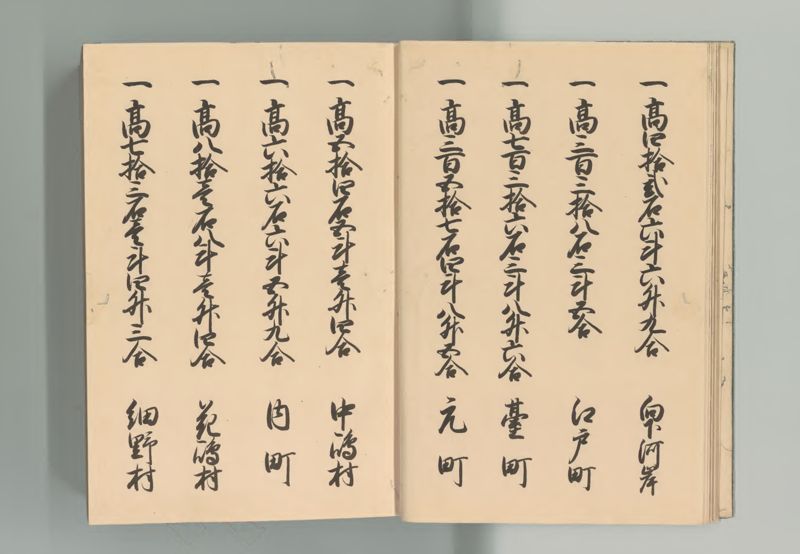 一高四拾弐石六斗六升九合 向河岸
一高三百三拾八石三斗五合 江戸町
一高七百三拾六石三斗八升六合 臺町
一高三百五拾七石四斗八升五合 元町
一高五拾四石五斗壱升四合 中嶋村
一高六拾六石六斗五升九合 内町
一高八拾壱石八斗壱升四合 荒嶋村
一高七拾三石壱斗四升三合 細野村